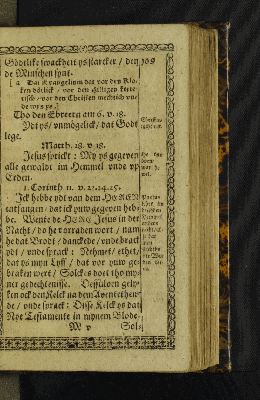 Gödtlike swackheit ys starcker / den
de Minschen synt.
[a Dat Evangelium dat vor den Klo-
ken dörlick / vor den Hilligen kette-
risch / vor den Christen mechtich vnde
wys ys.]
Tho den Ebreern am 6. v. 18.
Idt ys / vnmögelick / dat Godt
lege.
Matth. 28. v. 18.
Jesus sprickt : My ys gegeven
alle gewaldt im Hemmel vnde vp
Erden.
1. Corinth 11. v. 23. 24. 25.
Ick hebbe ydt van dem HEREN
entfangen / dat ick yuw gegeven heb-
be. Wente de HERE Jesus in der
Nacht / do he vorraden wert / nam
he dat Brodt / danckede / vnde brack
ydt / vnde sprack : Nehmet / ethet /
dat ys myn Lyff / dat vor yuw ge-
braken wert / Solckes doet tho my-
ner gedechtenisse. Dessülven gely-
ken ock den Kelck na dem Aventethen-
de / vnde sprack : Disse Kelck ys dat
Nye Testamente in mynem Blode.
M v
Sol-